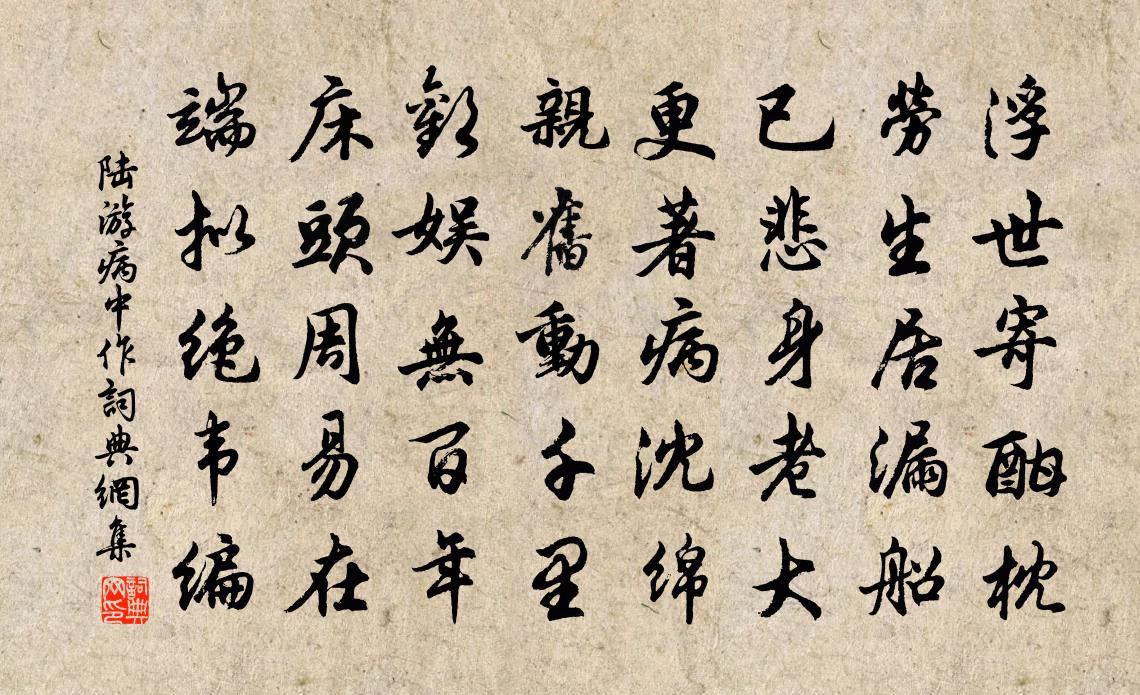 浮世寄酣枕
勞生居漏船
已悲身老大
更著病沈绵
親舊動千里
歡娱無百年
床頭周易在
端拟绝韦编
陆游病中作詞典網集
詞典网印